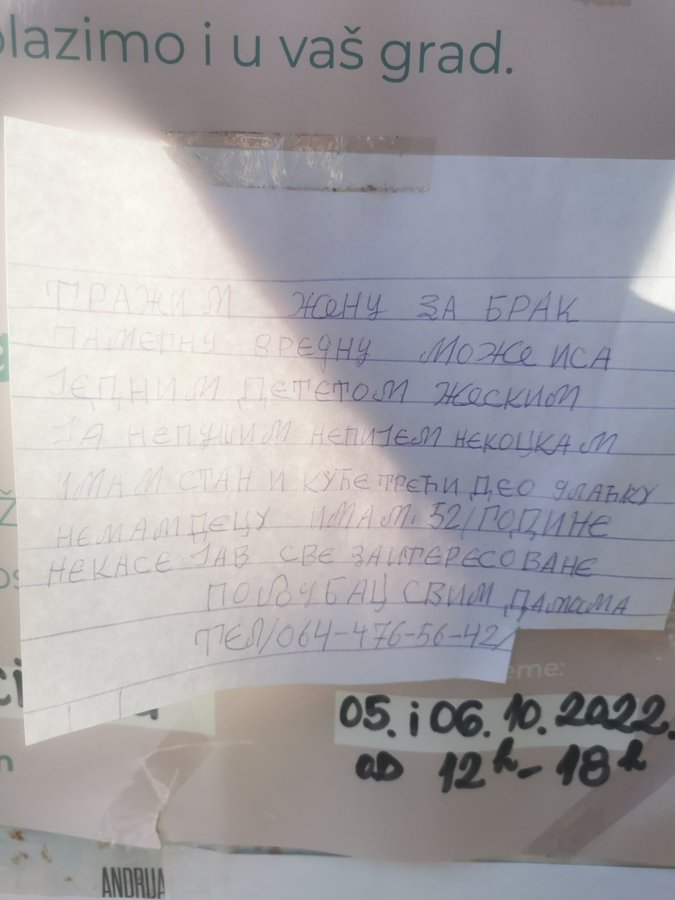 lazimo i u vaš grad.
ТРАЖИМ ЖЕНУ ЗА БРАК
ПАМЕРНУ ВРЕДНУ МОЖЕ ИСА
ЈЕДНИМ ДЕТЕТОМ ЖЕСКИМ
ЈА НЕПУШИМ НЕПИЈЕМ НЕКОЦКАМ
ИМАМ СТАН И КУЋЕ ТРЕЋИ ДЕО
НЕМАМ ДЕЦУ ИМАМ. 52/ГОДИНЕ
НЕКАСЕ ЈАВ СВЕ ЗАИТЕРЕСОВАНЕ
ПОЉУБАЦ СВИМ ДАМАМА
ТЕЛ/064-476-56-42/
eme:
05. i 06. 10. 2022.
OD 12h - 18h
ANDRIJA